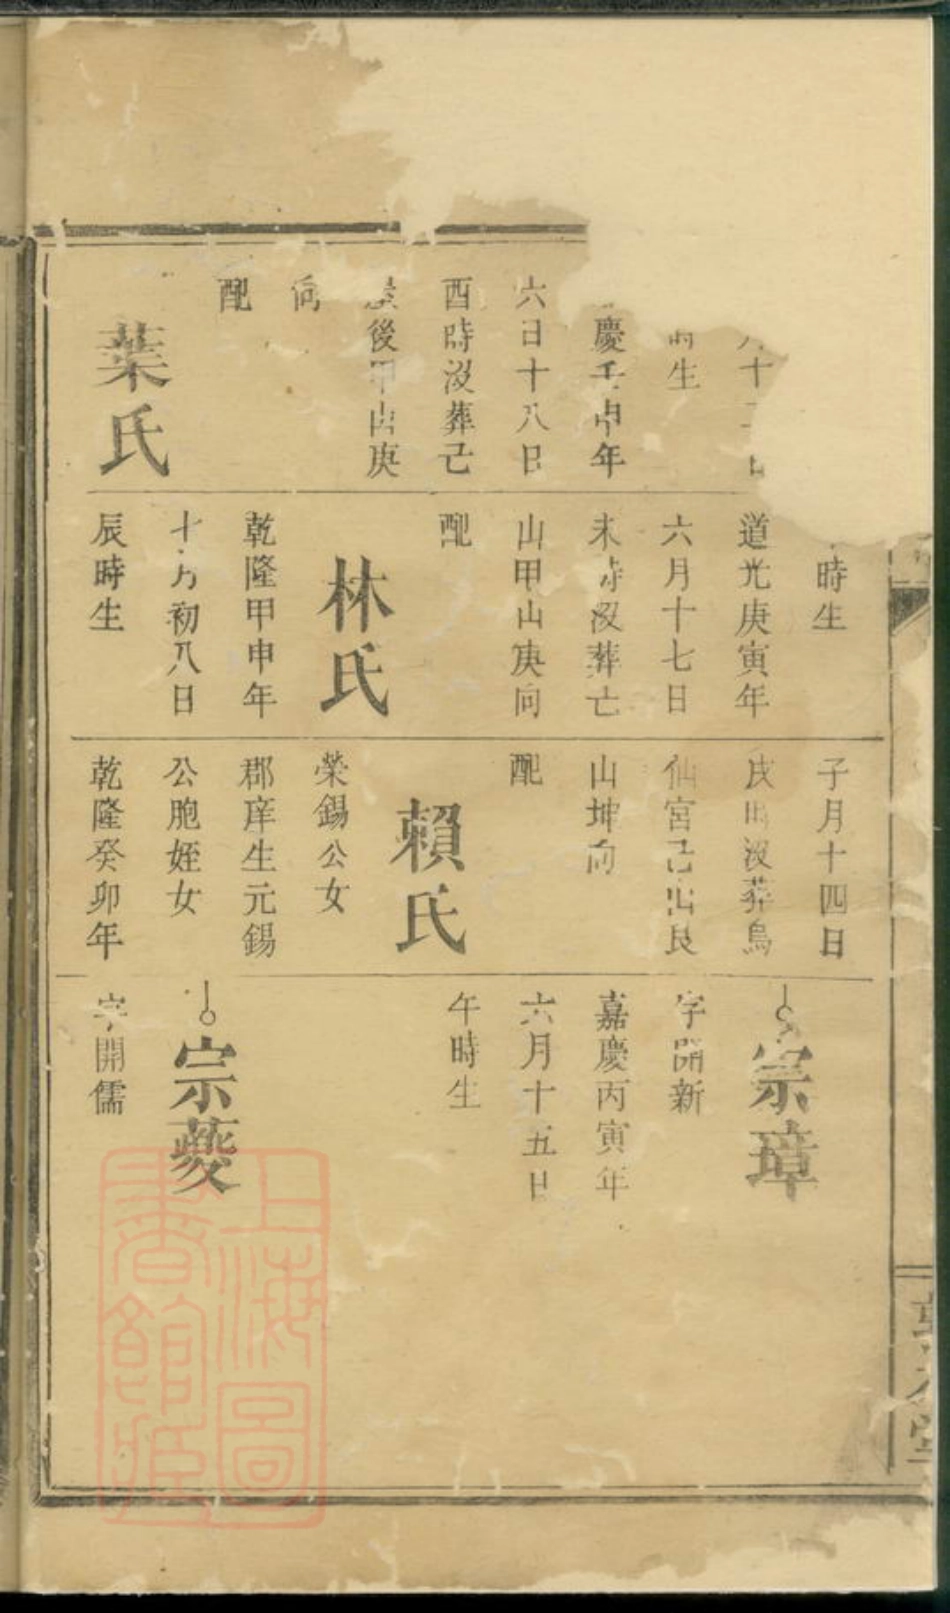 十
生
慶壬申年
六日十八日
酉時没葬己
後甲山庚
向
配
葉氏
時生
道光庚寅年
六月十七日
未時没葬亡
山甲山庚向
配
林氏
乾隆甲申年
十月初八日
辰時生
子月十四日
没葬烏
仙宮己山艮
山坤向
配
賴氏
榮錫公女
郡庠生元錫
公胞姪女
乾隆癸卯年
宗璋
字開新
嘉慶丙寅年
六月十五日
午時生
宗藑
字開儒
上海圖
書館藏